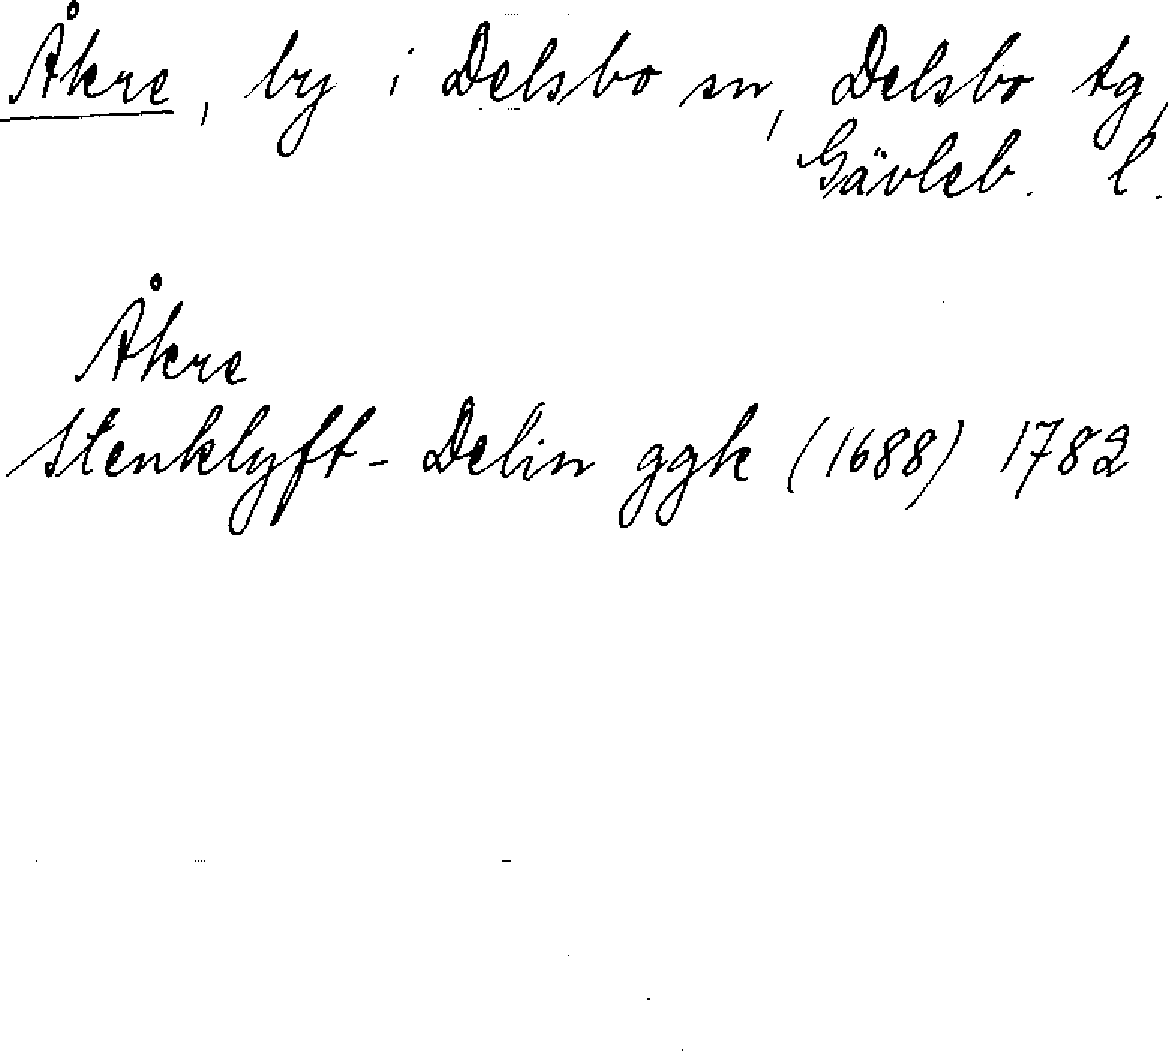 Åkre, by i Delsbo sn, Delsbo tg,
Gävleb. l.
Åkre
Stenklyft - Delin ggk (1688) 1782